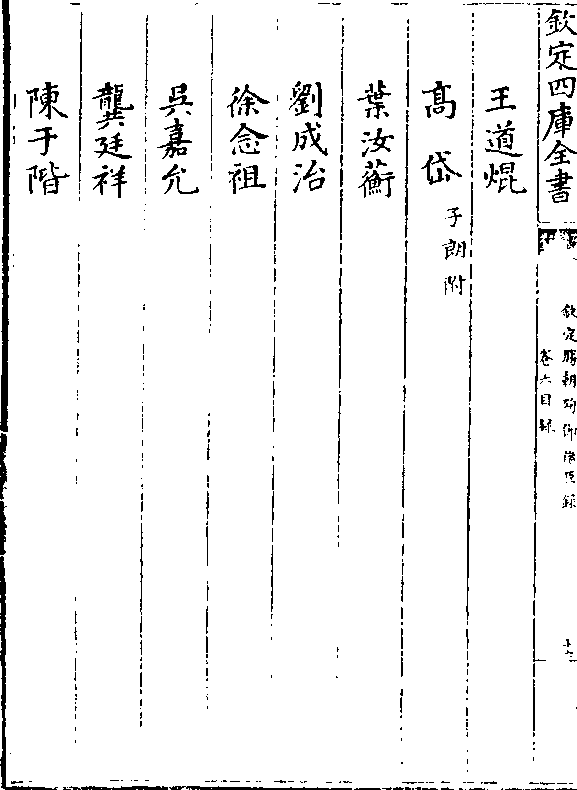 欽定四庫全書
欽定勝朝殉節諸臣錄
卷六目錄
王道焜
高岱 子朗附
葉汝𧃒
劉成治
徐念祖
吳嘉允
龔廷祥
陳于階